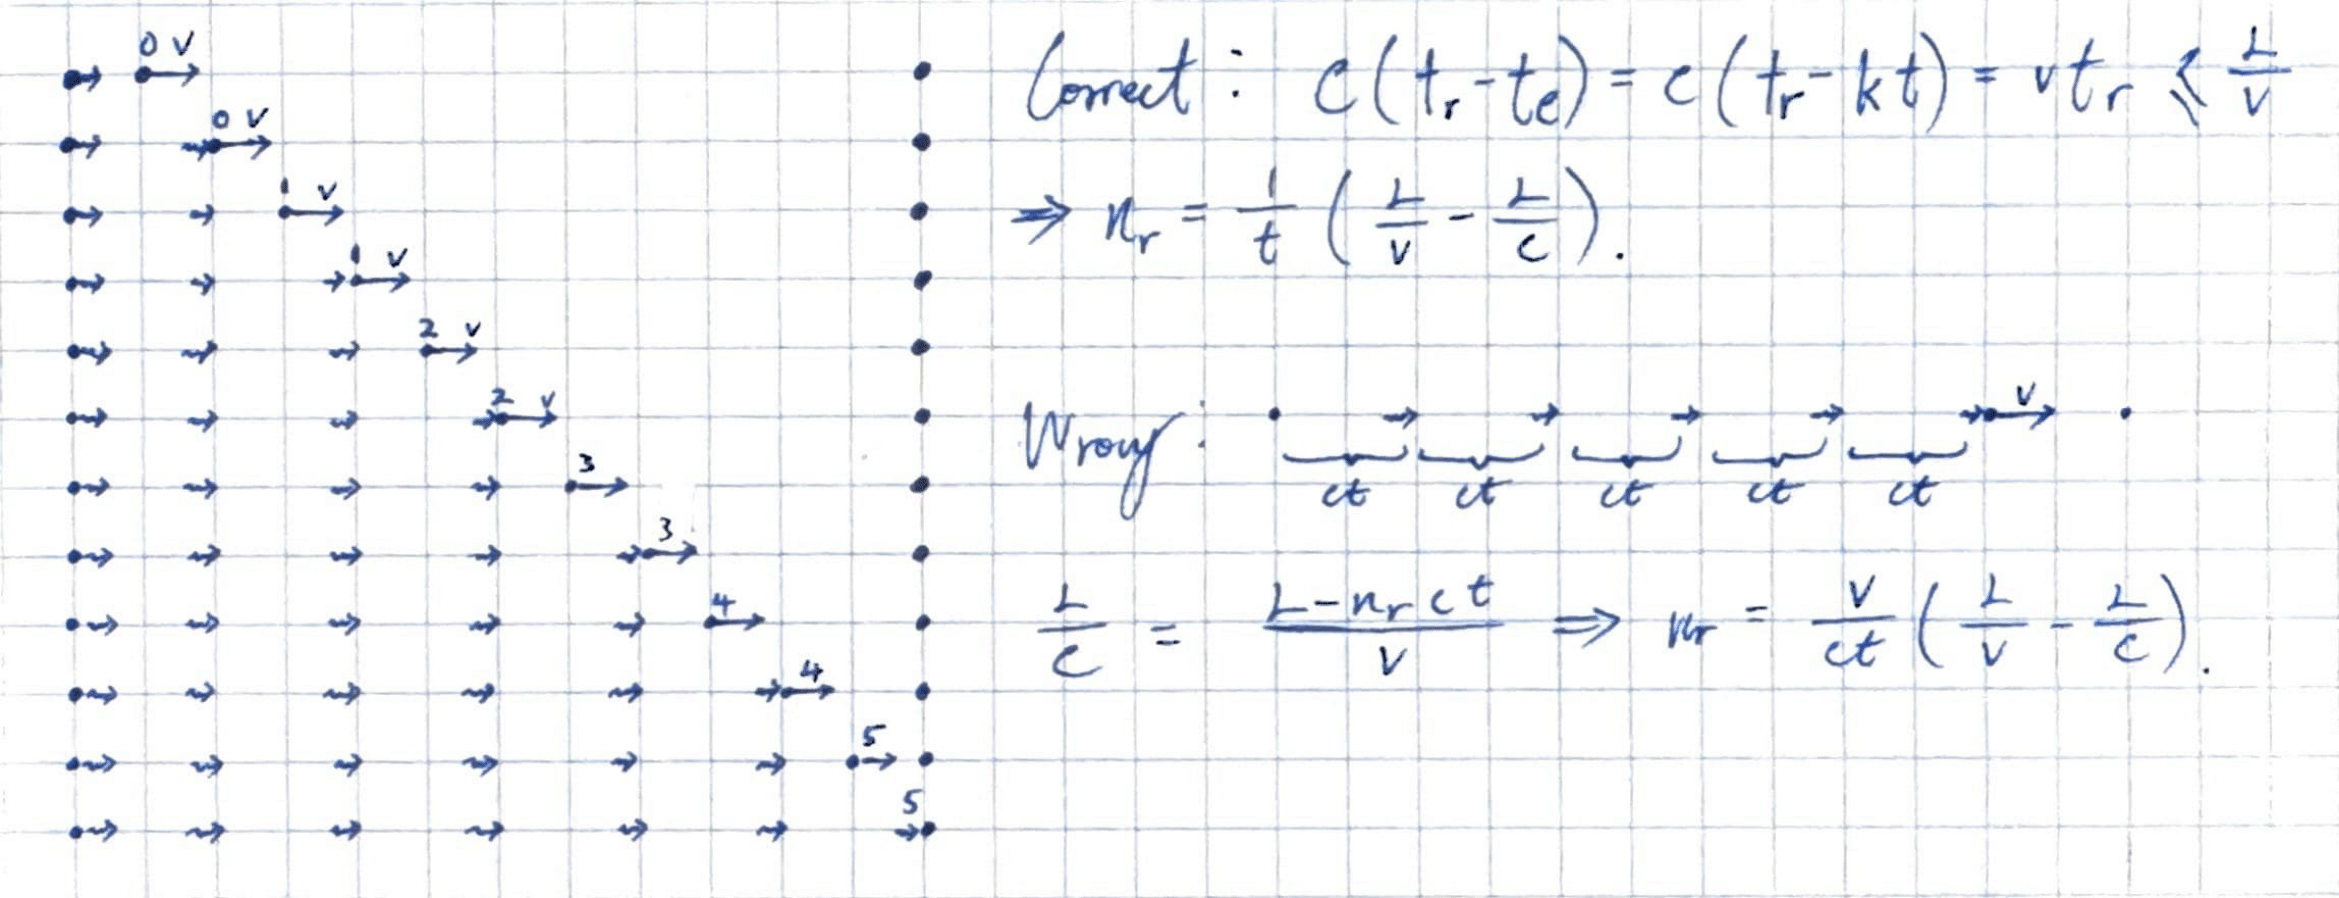 0 v
0 v
1 v
1 v
2 v
2 v
3
3
4
4
5
5
Correct: c(t_r - t_e) = c(t_r - kt) = v t_r ⩽ L/v
⇒ n_r = 1/t (L/v - L/c).
Wrong: v
ct ct ct ct ct
L/c = (L - n_r ct)/v ⇒ n_r = v/ct (L/v - L/c).